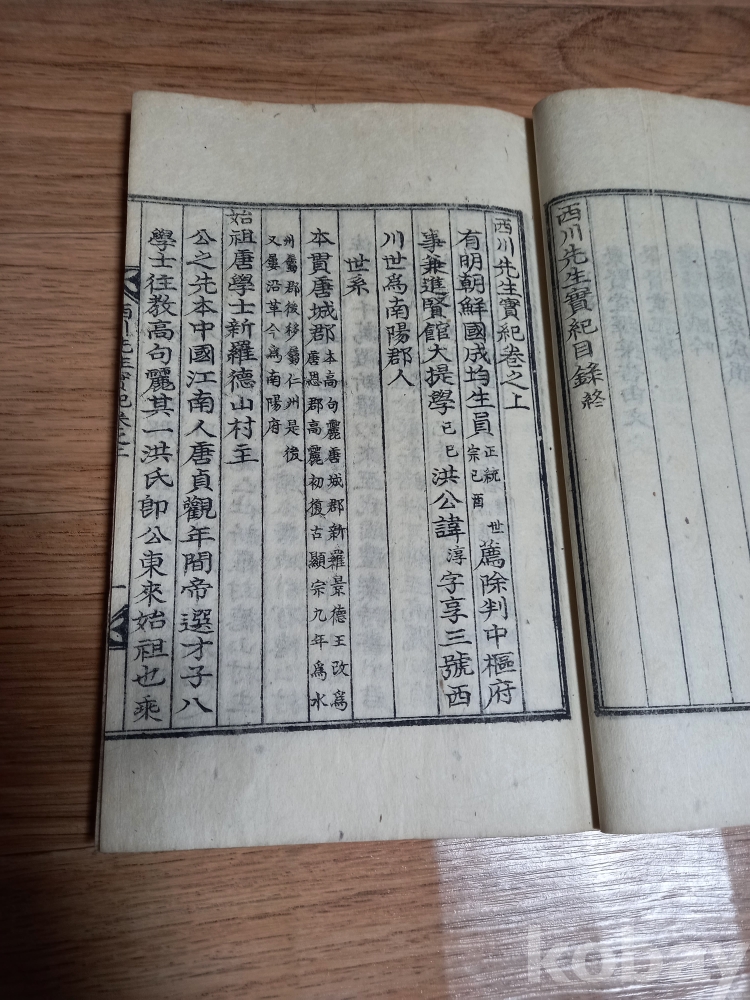 西川先生實紀目錄終
西川先生實紀卷之上
有明朝鮮國成均生員正統己酉世宗薦除判中樞府
事兼進賢館大提學己巳洪公諱淳字享三號西
川世爲南陽郡人
世系
本貫唐城郡本高句麗唐城郡新羅景德王改爲
唐恩郡高麗初復古顯宗九年爲水
州屬郡後移屬仁州是後
又屢沿革今爲南陽府
始祖唐學士新羅德山村主
公之先本中國江南人唐貞觀年間帝選才子八
學士往教高句麗其一洪氏卽公東來始祖也乘
西川先生實紀卷之上
一
kobay